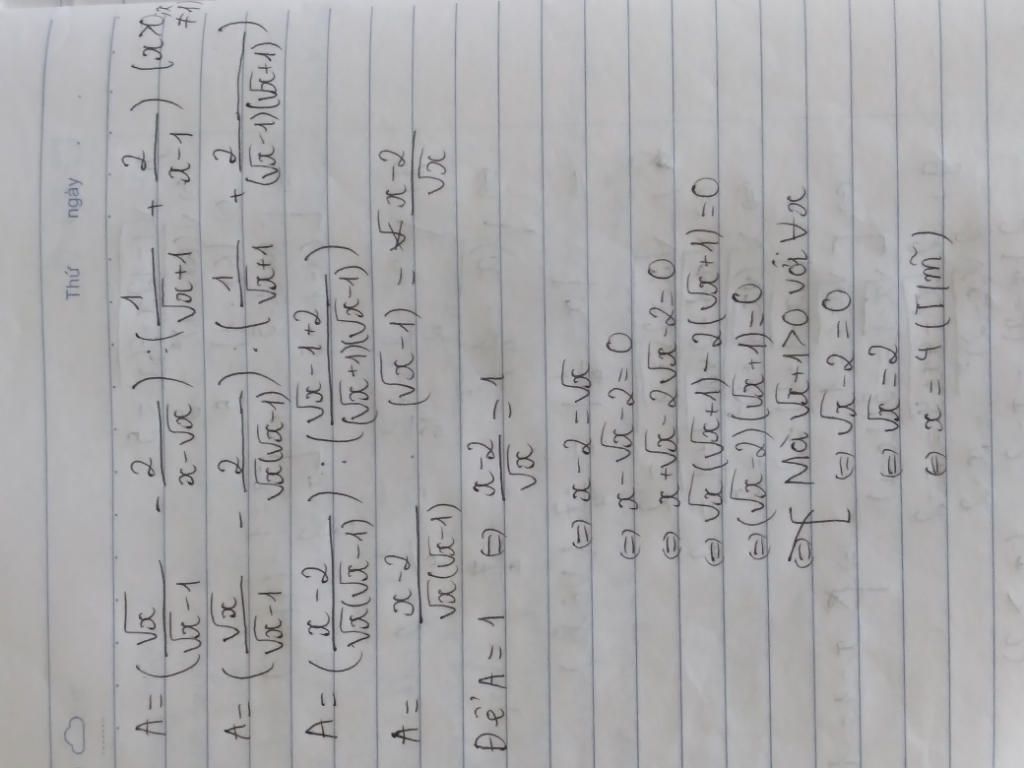 Thứ ngày
A = (√x/(√x-1) - 2/(x-√x)) : (1/(√x+1) + 2/(x-1)) (x>0, x≠1)
A = (√x/(√x-1) - 2/(√x(√x-1))) : (1/(√x+1) + 2/((√x-1)(√x+1)))
A = ((x-2)/(√x(√x-1))) : ((√x-1+2)/((√x+1)(√x-1)))
A = (x-2)/(√x(√x-1)) . (√x-1) = (x-2)/√x
Để A = 1 ⇔ (x-2)/√x = 1
⇔ x-2=√x
⇔ x-√x-2=0
⇔ x+√x-2√x-2=0
⇔ √x(√x+1)-2(√x+1)=0
⇔ (√x-2)(√x+1)=0
Mà √x+1>0 với ∀x
⇔ √x-2=0
⇔ √x=2
⇔ x=4 (T/m)